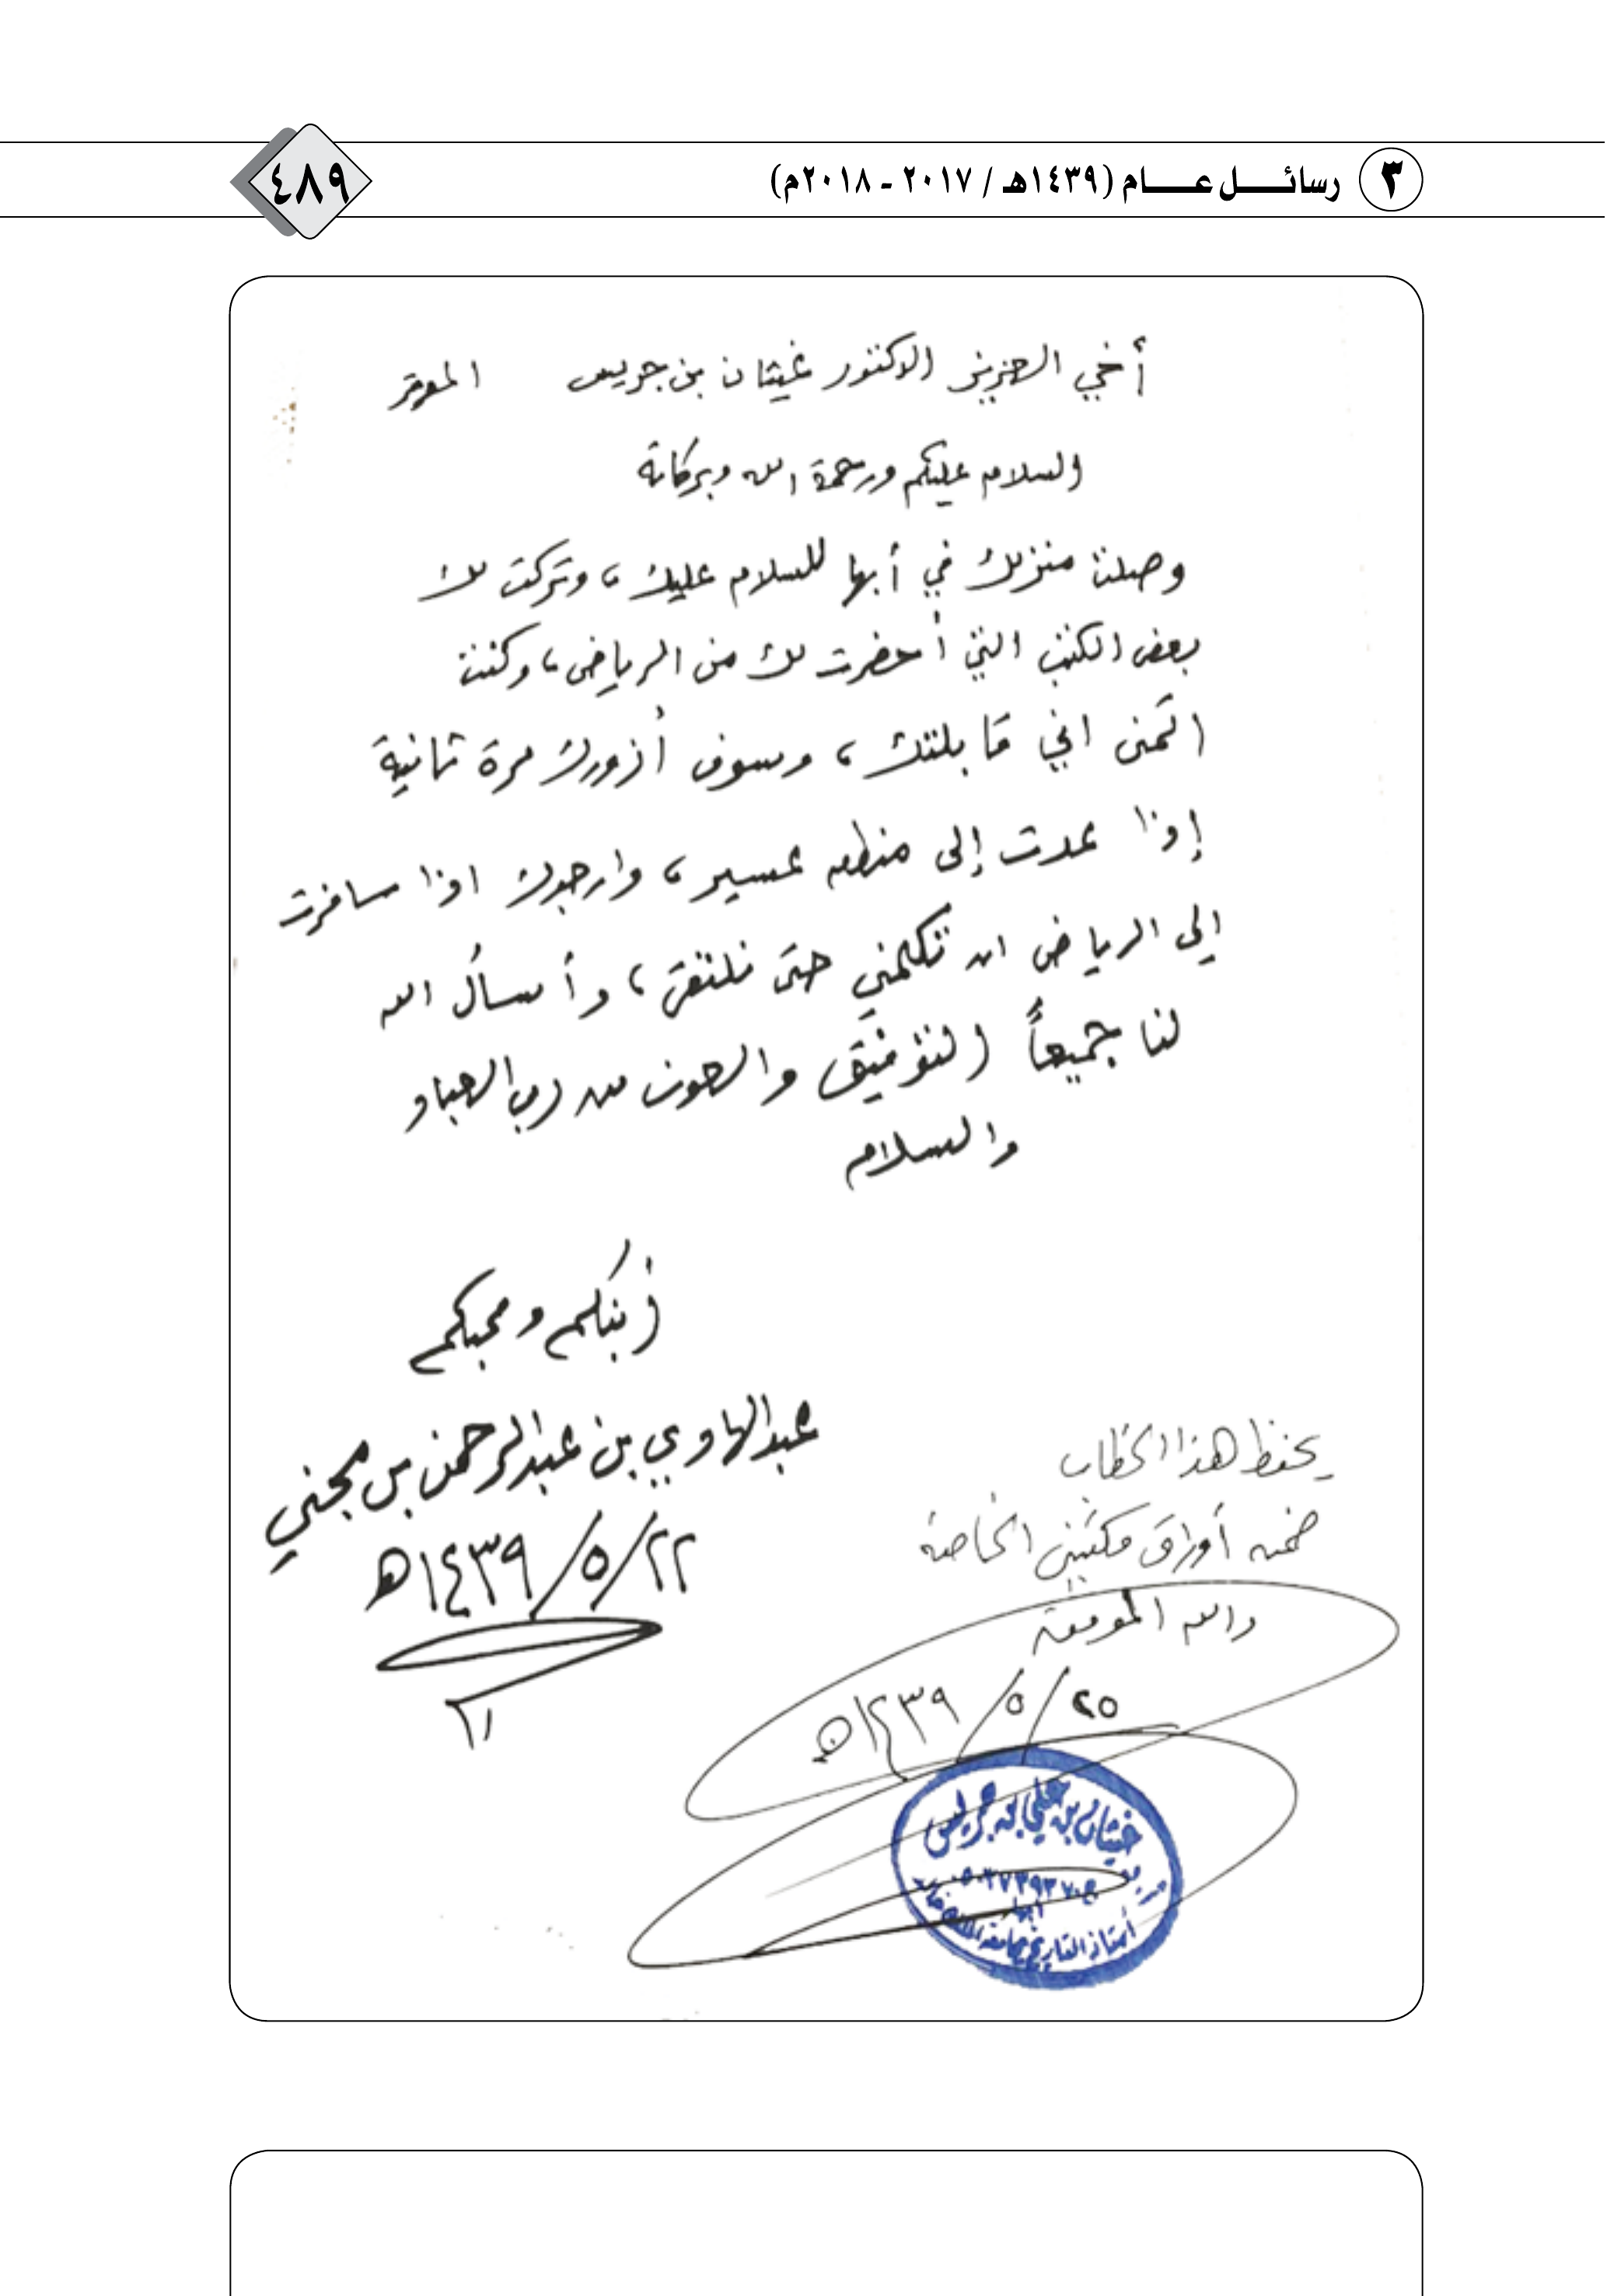 ٣ رسائل عام (١٤٣٩هـ / ٢٠١٧ - ٢٠١٨م)
٤٨٩
أخي العزيز الدكتور غيثان بن جريس الموقر
السلام عليكم ورحمة الله وبركاته
وصلت منزلك في أبها للسلام عليك، وتركت لك
بعض الكتب التي أحضرت لك من الرياض، وكنت
اتمنى اني قابلتك، وسوف أزورك مرة ثانية
إذا عدت إلى منطقه عسير، وارجوك اذا سافرت
الى الرياض ان تكلمني حتى نلتقي، وأسأل الله
لنا جميعاً التوفيق والعون من رب العباد
والسلام
أبنكم ومحبكم
عبدالهادي بن عبدالرحمن بن مجني
٢٢/٥/١٤٣٩هـ
يحفظ هذا الخطاب
ضمن أوراق مكتبتي الخاصة
والله الموفق
٢٥/٥/١٤٣٩هـ
غيثان بن علي بن جريس
أبها
أستاذ التاريخ بجامعة الملك خالد